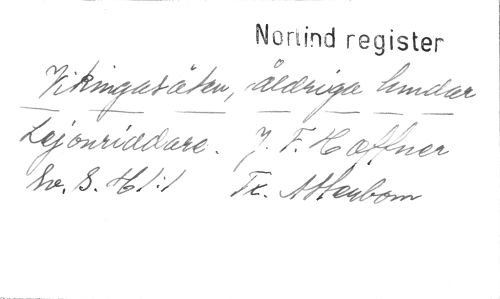 Norlind register
Vikingasäten, åldriga lundar
Lejonriddare. J. F. Hæffner
Sv. S. H 1:1 Tx. Atterbom